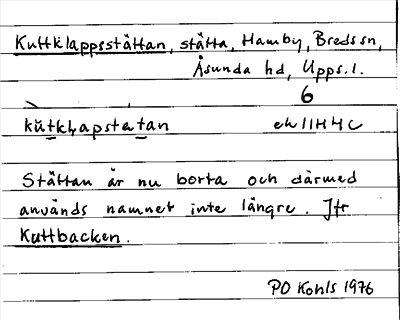 Kuttklappsstättan, stätta, Hamby, Breds sn,
Åsunda hd, Upps. l.
6
kùtkḷapstȩtan ek 11H4c
Stättan är nu borta och därmed
används namnet inte längre. Jfr
Kuttbacken.
PO Kohls 1976